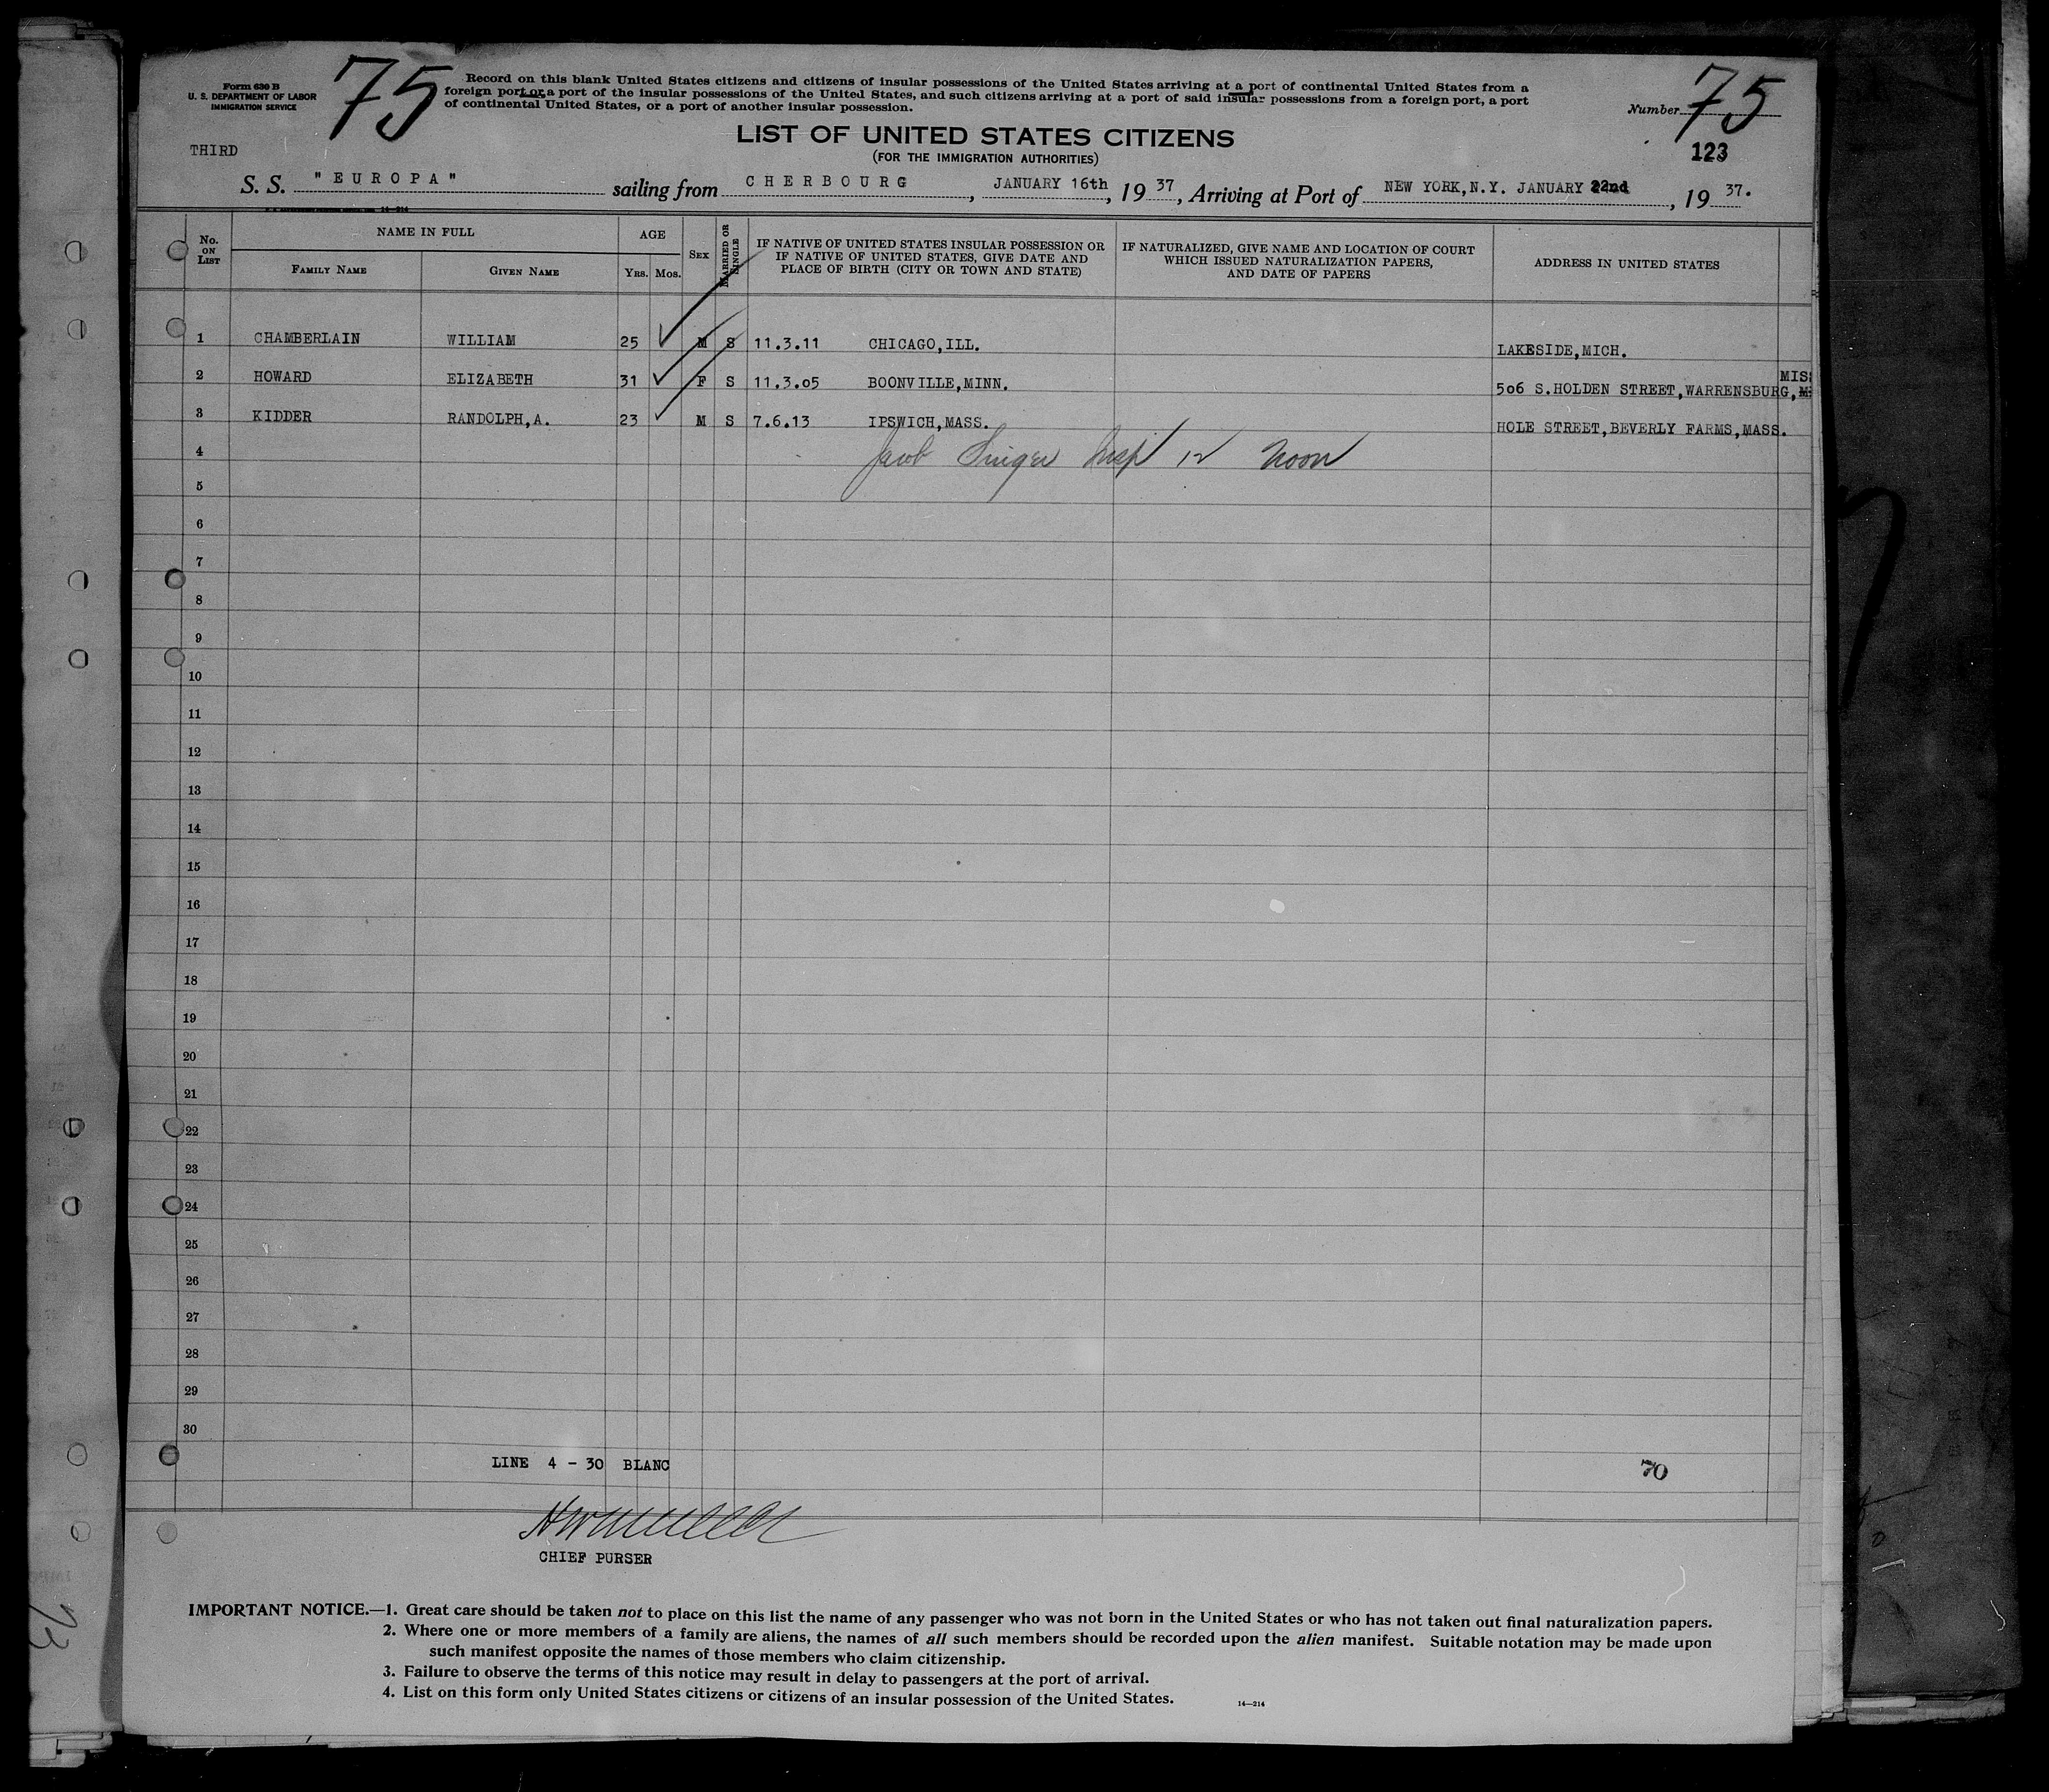 Form 630 B
U. S. DEPARTMENT OF LABOR
IMMIGRATION SERVICE
75
Record on this blank United States citizens and citizens of insular possessions of the United States arriving at a port of continental United States from a
foreign port or a port of the insular possessions of the United States, and such citizens arriving at a port of said insular possessions from a foreign port, a port
of continental United States, or a port of another insular possession.
Number 75
LIST OF UNITED STATES CITIZENS
(FOR THE IMMIGRATION AUTHORITIES)
123
THIRD
S. S. "EUROPA" sailing from CHERBOURG, JANUARY 16th, 1937, Arriving at Port of NEW YORK,N.Y. JANUARY 22nd, 1937.
No. ON LIST
NAME IN FULL
FAMILY NAME GIVEN NAME
AGE
YRS. MOS.
SEX
MARRIED OR SINGLE
IF NATIVE OF UNITED STATES INSULAR POSSESSION OR
IF NATIVE OF UNITED STATES, GIVE DATE AND
PLACE OF BIRTH (CITY OR TOWN AND STATE)
IF NATURALIZED, GIVE NAME AND LOCATION OF COURT
WHICH ISSUED NATURALIZATION PAPERS,
AND DATE OF PAPERS
ADDRESS IN UNITED STATES
1 CHAMBERLAIN WILLIAM 25 M S 11.3.11 CHICAGO,ILL. LAKESIDE,MICH.
2 HOWARD ELIZABETH 31 F S 11.3.05 BOONVILLE,MINN. 506 S.HOLDEN STREET,WARRENSBURG, MIS
3 KIDDER RANDOLPH,A. 23 M S 7.6.13 IPSWICH,MASS. HOLE STREET,BEVERLY FARMS,MASS.
4 Jacob Singer Insp 12 Noon
5
6
7
8
9
10
11
12
13
14
15
16
17
18
19
20
21
22
23
24
25
26
27
28
29
30
LINE 4 - 30 BLANC
70
CHIEF PURSER
IMPORTANT NOTICE.—1. Great care should be taken not to place on this list the name of any passenger who was not born in the United States or who has not taken out final naturalization papers.
2. Where one or more members of a family are aliens, the names of all such members should be recorded upon the alien manifest. Suitable notation may be made upon
such manifest opposite the names of those members who claim citizenship.
3. Failure to observe the terms of this notice may result in delay to passengers at the port of arrival.
4. List on this form only United States citizens or citizens of an insular possession of the United States.
14—214